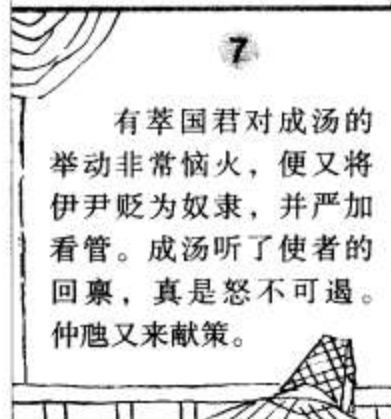 7
有莘国君对成汤的
举动非常恼火，便又将
伊尹贬为奴隶，并严加
看管。成汤听了使者的
回禀，真是怒不可遏。
仲虺又来献策。